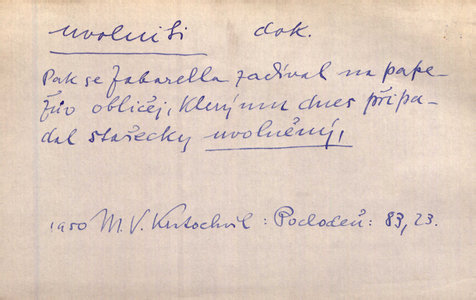 uvolniti dok.
Pak se Zabarella zadíval na pape-
žův obličej, který mu dnes připa-
dal stařecky uvolněný,
1950 M. V. Kratochvíl : Pochodeň : 83, 23.